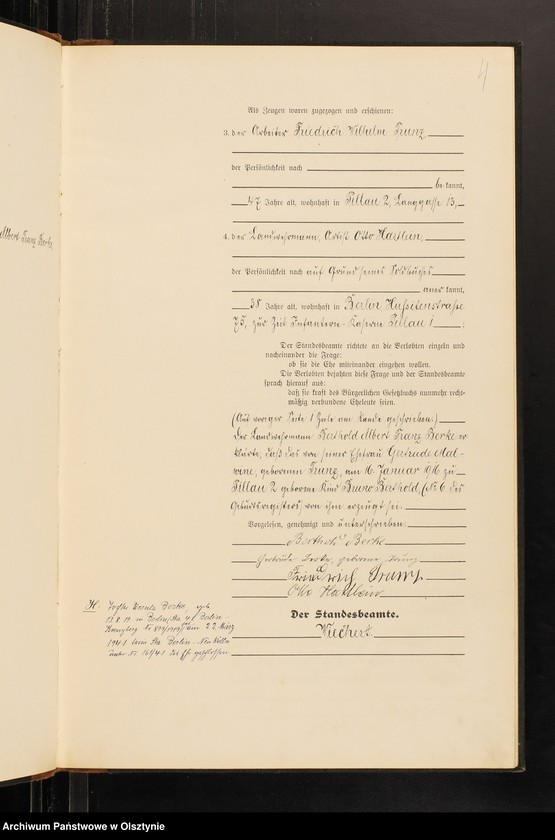 4
Albert Franz Berke
Als Zeugen waren zugezogen und erschienen:
3. der Arbeiter Friedrich Wilhelm Trunz
der Persönlichkeit nach
be kannt,
47 Jahre alt, wohnhaft in Pillau 2, Langgasse 13,
4. der Landwehrmann, Artist Otto Hartlein,
der Persönlichkeit nach auf Grund seines Soldbuches
aner kannt,
38 Jahre alt, wohnhaft in Berlin, Hussitenstraße
75, zur Zeit Infanterie-Kaserne Pillau 1 ;
Der Standesbeamte richtete an die Verlobten einzeln und
nacheinander die Frage:
ob sie die Ehe miteinander eingehen wollen.
Die Verlobten bejahten diese Frage und der Standesbeamte
sprach hierauf aus:
daß sie kraft des Bürgerlichen Gesetzbuchs nunmehr recht-
mäßig verbundene Eheleute seien.
(Auf voriger Seite 1 Zeile am Rande geschrieben.)
Der Landwehrmann Berthold Albert Franz Berke er
klärte, daß das von seiner Ehefrau Gertrude Mal-
wine, geborenen Trunz, am 16. Januar 1916 zu
Pillau 2 geborene Kind Bruno Berthold, (No 6 des
Geburtsregisters) von ihm erzeugt sei.
Vorgelesen, genehmigt und unterschrieben.
Berthold Berke
Gertrude Berke, geborene Trunz
Friedrich Trunz.
Otto Hartlein
Der Standesbeamte.
Wiechert.
H. Tochter Berke, geb.
13.8.19 in Berlin
Nr am 22. März
1941 Berlin-Neukölln
unter Nr. 161/41 die Ehe geschlossen
Archiwum Państwowe w Olsztynie